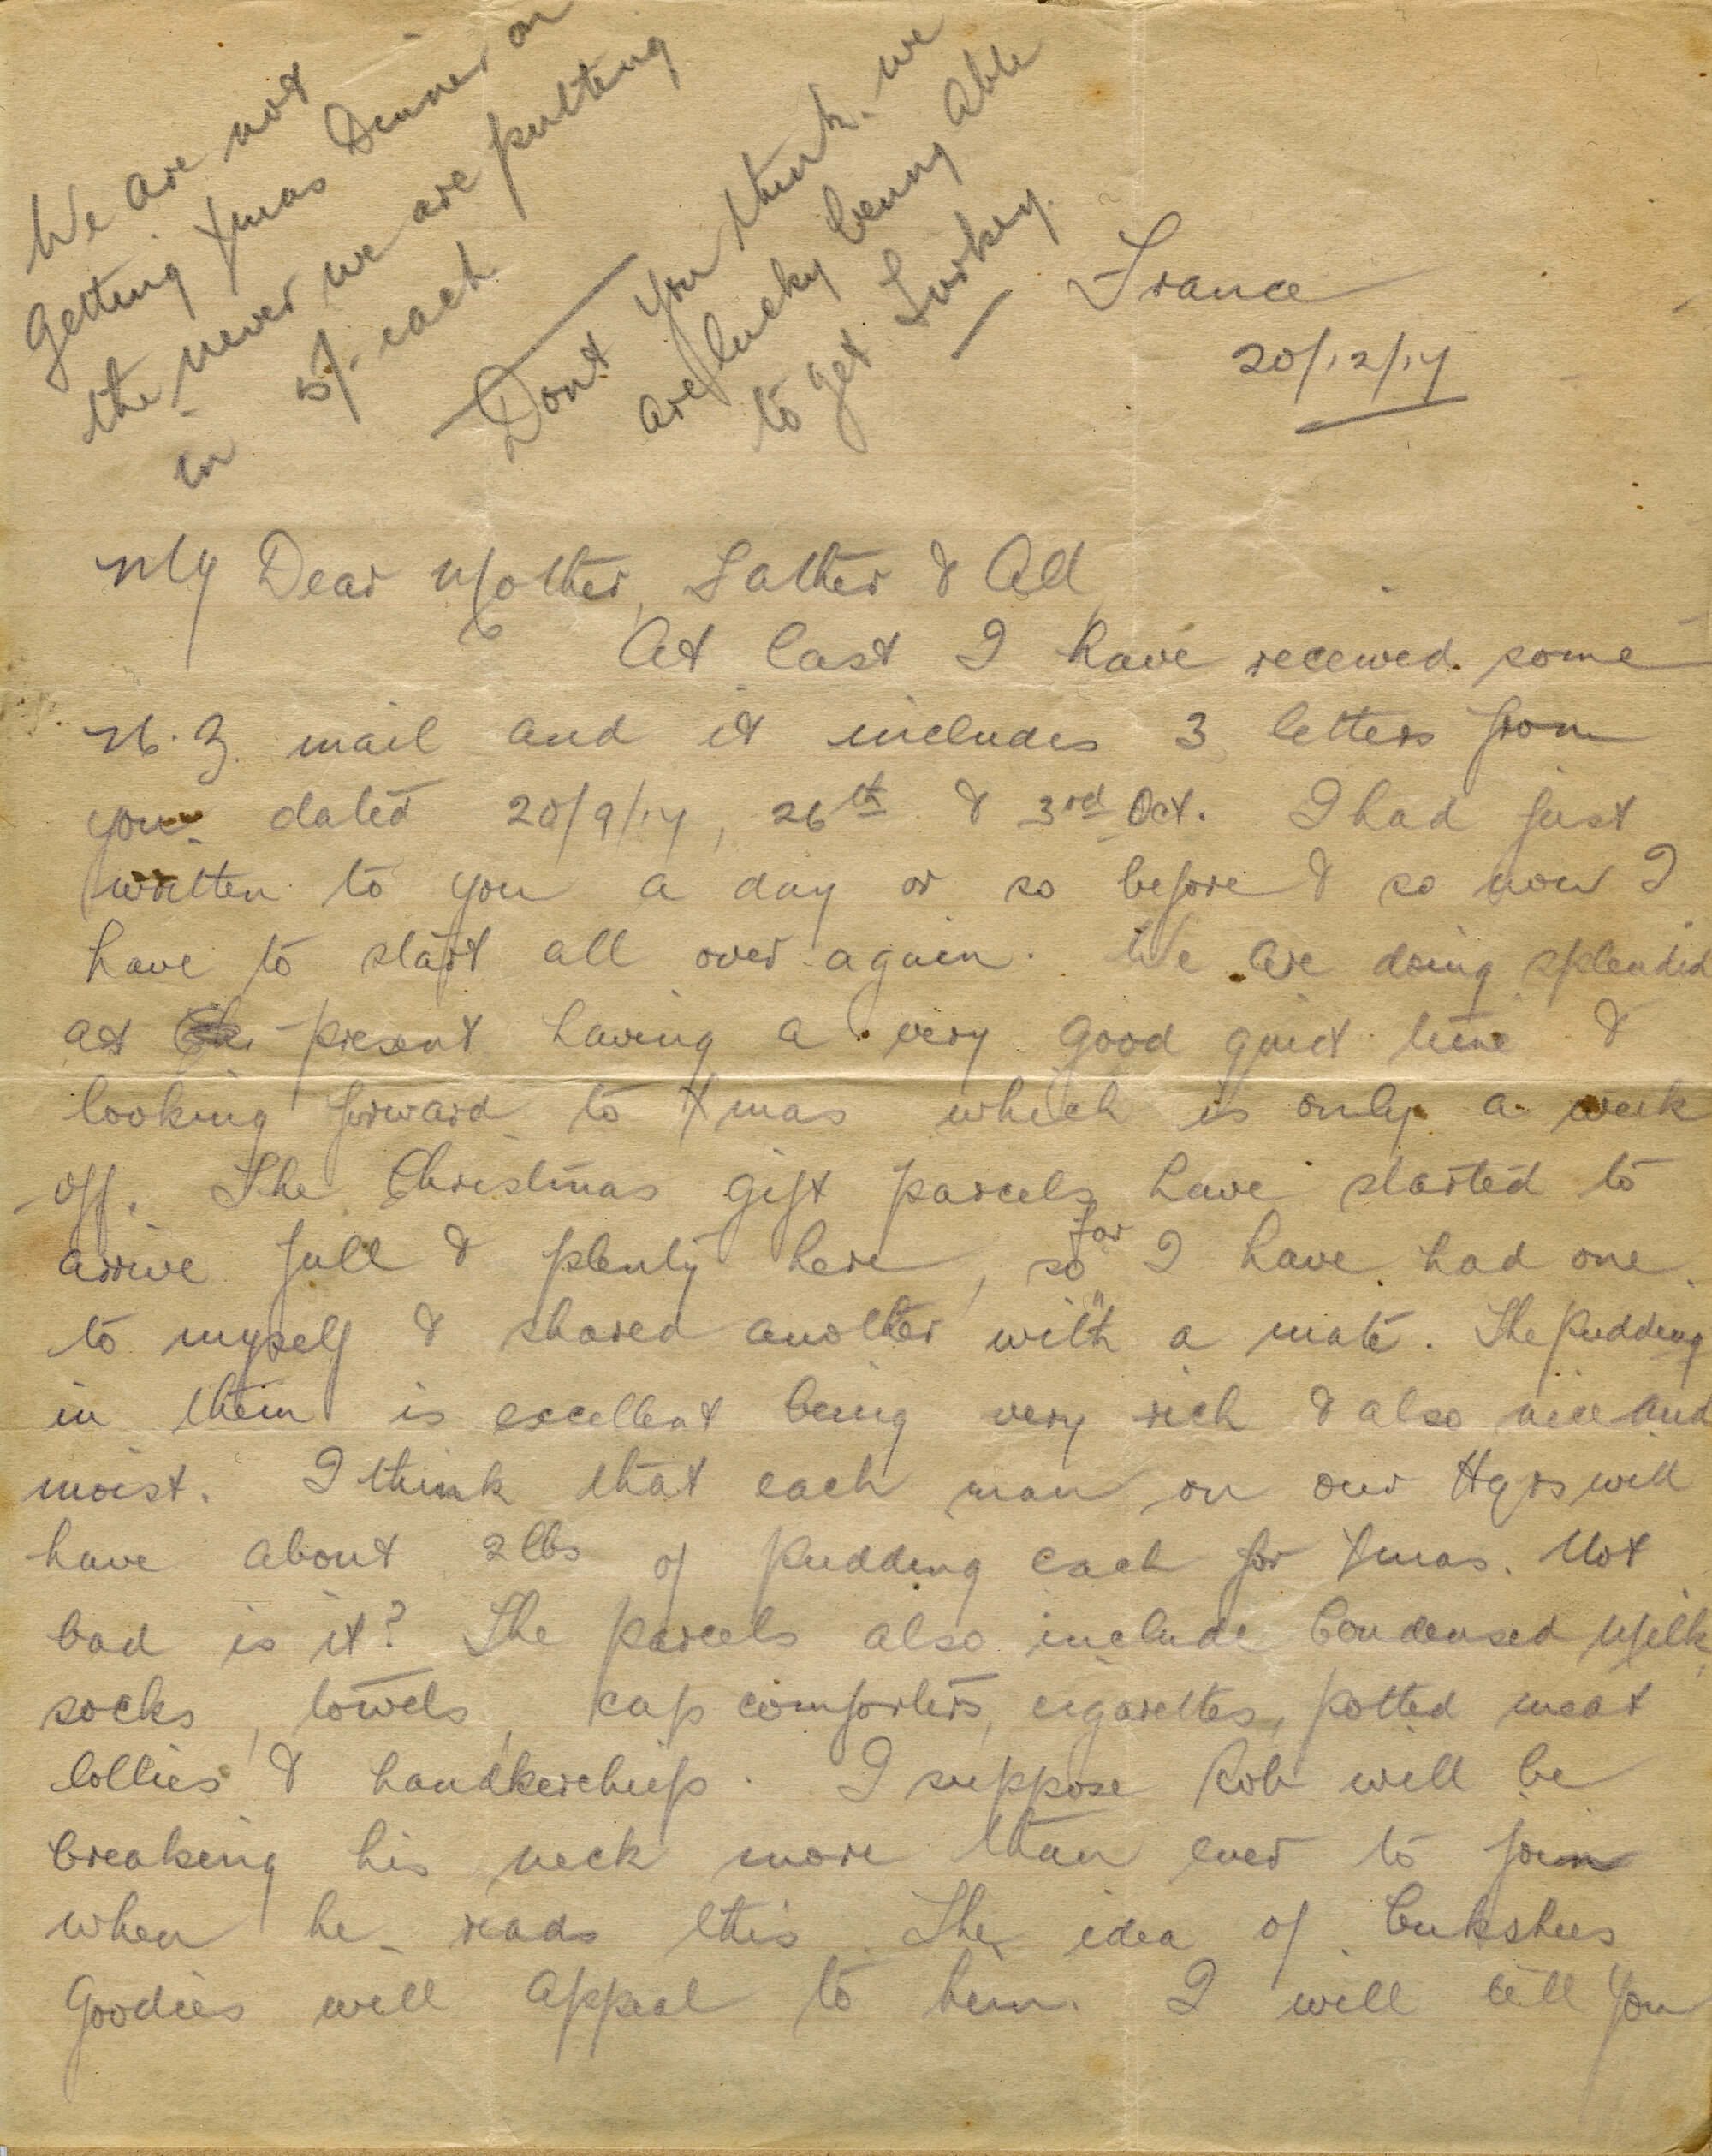 We are not
getting Xmas Dinner on
the never we are putting
in 5/- each
Dont you think we
are lucky being able
to get Turkey.
France
20/12/17
My Dear Mother, Father & All
At last I have received some
N.Z. mail and it includes 3 letters from
you dated 20/9/17, 26th & 3rd Oct. I had just
written to you a day or so before & so now I
have to start all over again. We are doing splendid
at present having a very good quiet time &
looking forward to Xmas which is only a week
off. The Christmas gift parcels have started to
arrive full & plenty here, so far I have had one
to myself & shared another with a mate. The pudding
in them is excellent being very rich & also nice and
moist. I think that each man on our Hqrs will
have about 2lbs of pudding each for Xmas. Not
bad is it? The parcels also include Condensed Milk,
socks, towels, cap comforters, cigarettes, potted meat
lollies & handkercheifs. I suppose Rob will be
breaking his neck more than ever to join
when he reads this. The idea of Bukshees
Goodies will appeal to him. I will tell you